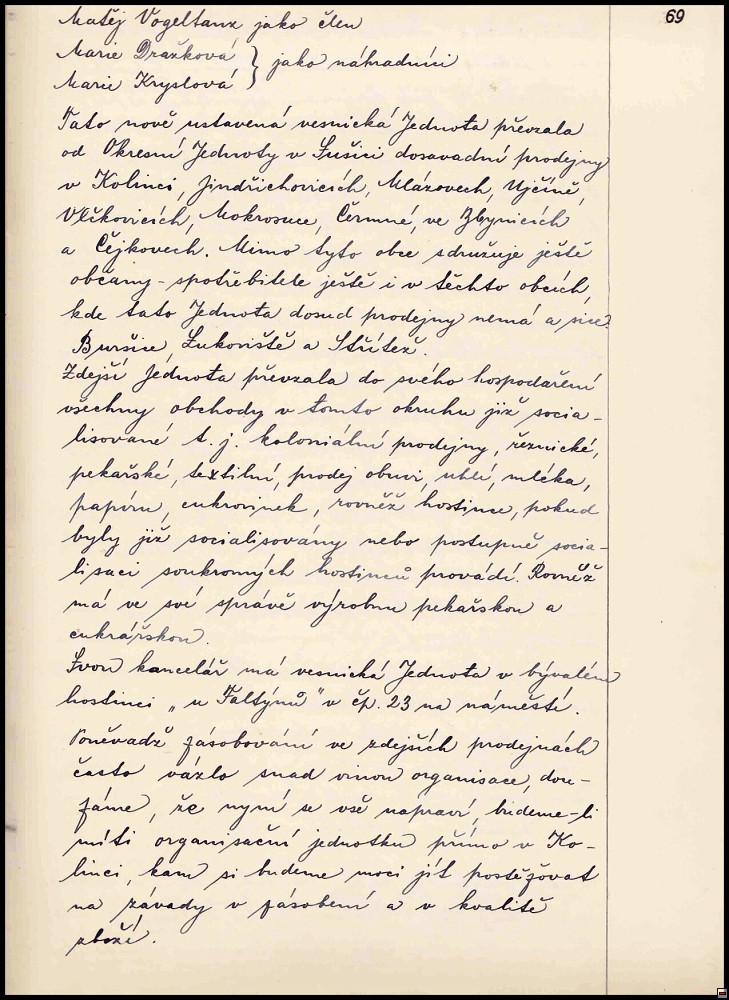 69
Matěj Vogeltanz jako člen
Marie Dražková
Marie Kryslová } jako náhradníci
Tato nově ustavená vesnická Jednota převzala
od Okresní Jednoty v Sušici dosavadní prodejny
v Kolinci, Jindřichovicích, Mlázovech, Ujčíně,
Vlčkovicích, Mokrosuce, Čermné, ve Zbynicích
a Čejkovech. Mimo tyto obce sdružuje ještě
občany - spotřebitele ještě i v těchto obcích,
kde tato Jednota dosud prodejny nemá a sice:
Buršice, Lukoviště a Střítež.
Zdejší Jednota převzala do svého hospodaření
všechny obchody v tomto okruhu již socia-
lisované t. j. koloniální prodejny, řeznické,
pekařské, textilní, prodej obuvi, uhlí, mléka,
papíru, cukrovinek, rovněž hostince, pokud
byly již socialisovány nebo postupně socia-
lisaci soukromých hostinců provádí. Rovněž
má ve své správě výrobnu pekařskou a
cukrářskou.
Svou kancelář má vesnická Jednota v bývalém
hostinci „u Faltýnů" v čp. 23 na náměstí.
Poněvadž zásobování ve zdejších prodejnách
často vázlo snad vinou organisace, dou-
fáme, že nyní se vše napraví, budeme-li
míti organisační jednotku přímo v Ko-
linci, kam si budeme moci jít postěžovat
na závady v zásobení a v kvalitě
zboží.